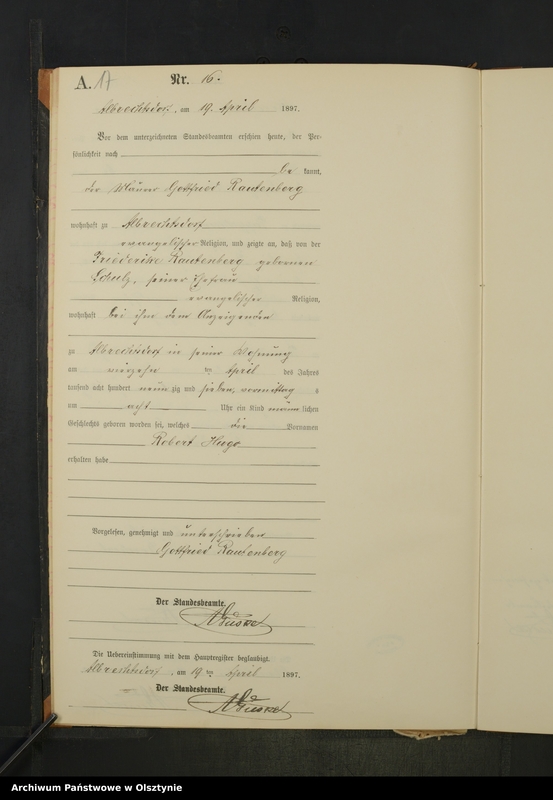 A. 17
Nr. 16.
Albrechtsdorf, am 19. April 1897.
Vor dem unterzeichneten Standesbeamten erschien heute, der Per-
sönlichkeit nach
be kannt,
der Maurer Gottfried Rautenberg
wohnhaft zu Albrechtsdorf
evangelischer Religion, und zeigte an, daß von der
Friederike Rautenberg geborenen
Schulz, seiner Ehefrau
evangelischer Religion,
wohnhaft bei ihm dem Anzeigenden
zu Albrechtsdorf in seiner Wohnung
am vierzehnten April des Jahres
tausend acht hundert neunzig und sieben, vormittags
um acht Uhr ein Kind männlichen
Geschlechts geboren worden sei, welches die Vornamen
Robert Hugo
erhalten habe
Vorgelesen, genehmigt und unterschrieben
Gottfried Rautenberg
Der Standesbeamte.
Die Uebereinstimmung mit dem Hauptregister beglaubigt.
Albrechtsdorf, am 19ten April 1897.
Der Standesbeamte.
Archiwum Państwowe w Olsztynie